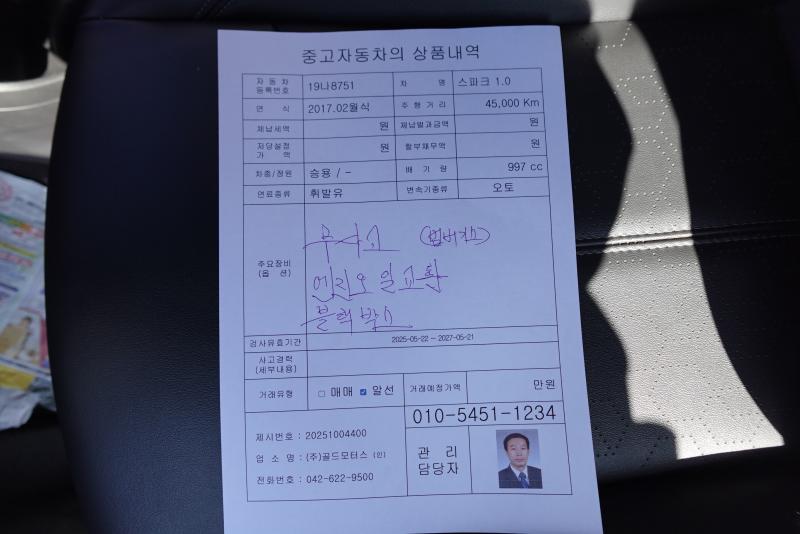 중고자동차의 상품내역
자동차 등록번호 19나8751 차 명 스파크 1.0
연 식 2017.02월식 주행거리 45,000 Km
체납세액 원 체납벌과금액 원
저당설정 가 액 원 할부채무액 원
차종/정원 승용 / - 배 기 량 997 cc
연료종류 휘발유 변속기종류 오토
주요장비 (옵 션)
무사고 (범버키스)
엔진오일교환
블랙박스
검사유효기간 2025-05-22 ~ 2027-05-21
사고경력 (세부내용)
거래유형 □ 매매 ☑ 알선 거래예정가액 만원
010-5451-1234
제시번호 : 20251004400
업 소 명 : (주)골드모터스 (인)
전화번호 : 042-622-9500
관 리
담당자